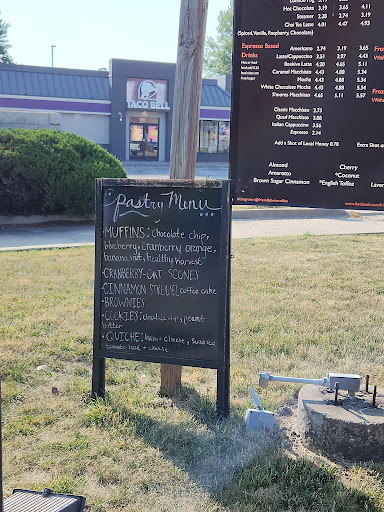 Hot Chocolate 3.19 3.65 4.11
Steamer 2.30 2.74 3.19
Chai Tea Latte 4.01 4.47 4.93
(Spiced, Vanilla, Raspberry, Chocolate)
Espresso Based
Drinks
Americano 2.74 3.19 3.65
Latte/Cappuccino 3.51 2.97 4.43
Beehive Latte 4.20 4.65 5.11
Caramel Macchiato 4.43 4.88 5.34
Mocha 4.43 4.88 5.34
White Chocolate Mocha 4.43 4.88 5.34
Smores Macchiato 4.65 5.11 5.57
Classic Macchiato 3.73
Quad Macchiato 3.88
Italian Cappuccino 3.56
Espresso 2.14
Add a Shot of Local Honey 0.78
Extra Shot
Almond
Cherry
Amaretto
*Coconut
Brown Sugar Cinnamon
*English Toffee
TACO BELL
Pastry Menu
• MUFFINS: Chocolate chip,
blueberry, Cranberry orange,
banana nut, healthy harvest
• CRANBERRY-OAT SCONES
• CINNAMON STREUSEL coffee cake
• BROWNIES
• COOKIES: chocolate chip, peanut
butter
• QUICHE: Ham + cheese,
+ cheese